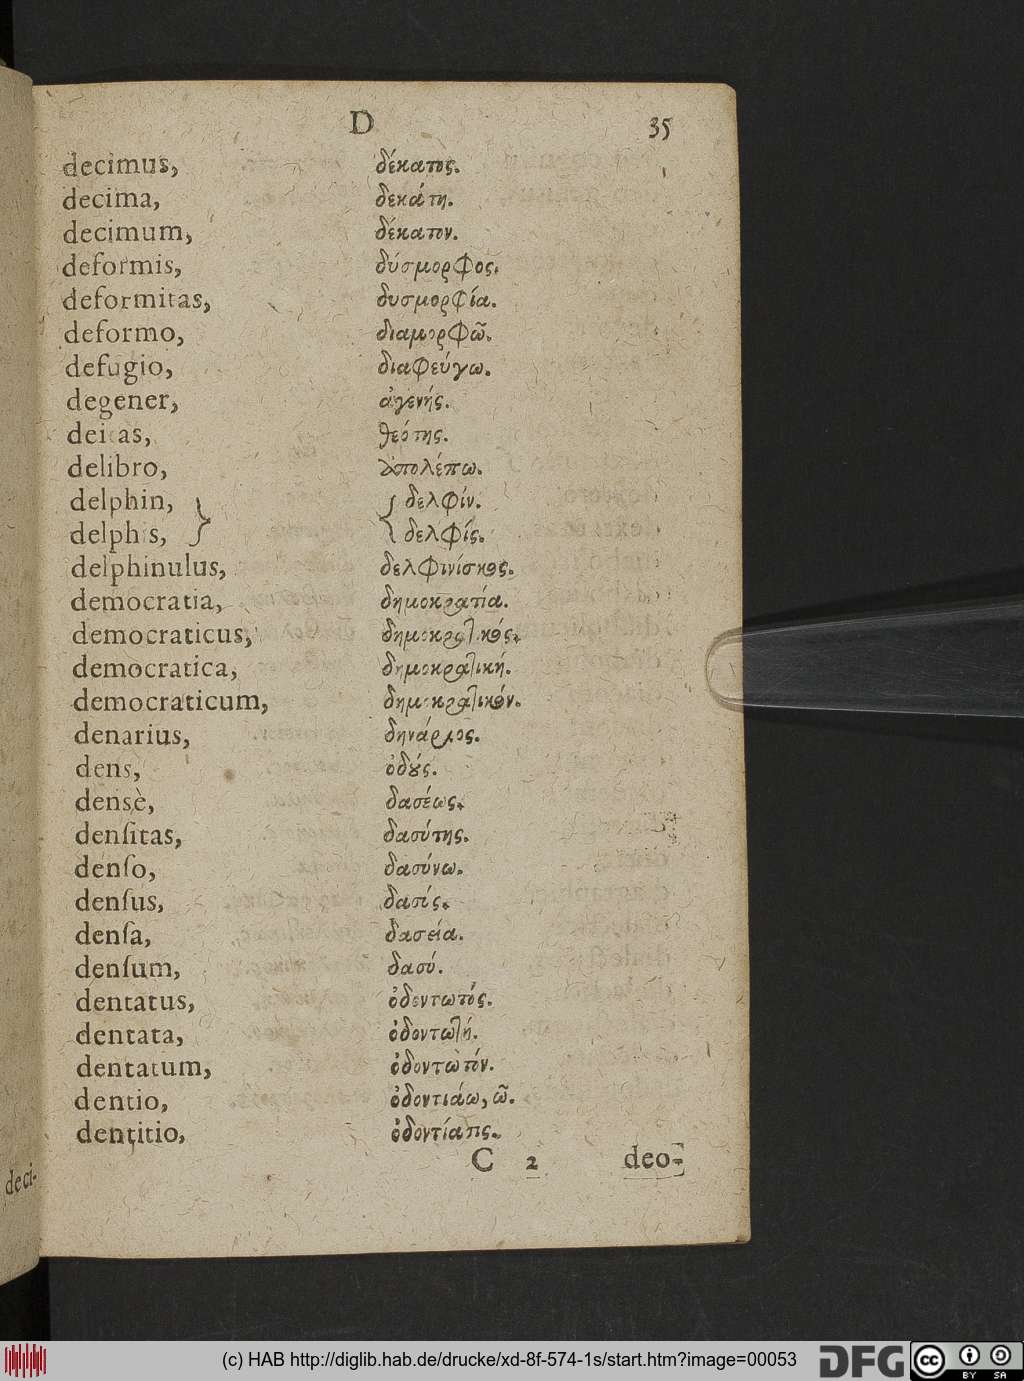 D 35
decimus, δέκατος.
decima, δεκάτη.
decimum, δέκατον.
deformis, δύσμορφος.
deformitas, δυσμορφία.
deformo, διαμορφῶ.
defugio, διαφεύγω.
degener, ἀγενής.
deitas, θεότης.
delibro, ἀπολέπω.
delphin, } { δελφίν.
delphis, } { δελφίς.
delphinulus, δελφινίσκος.
democratia, δημοκρατία.
democraticus, δημοκρατικός.
democratica, δημοκρατική.
democraticum, δημοκρατικόν.
denarius, δηνάριος.
dens, ὀδούς.
densè, δασέως.
denſitas, δασύτης.
denſo, δασύνω.
denſus, δασίς.
denſa, δασεία.
denſum, δασύ.
dentatus, ὀδοντωτός.
dentata, ὀδοντωτή.
dentatum, ὀδοντωτόν.
dentio, ὀδοντιάω, ῶ.
dentitio, ὀδοντίασις.
C 2 deo-
deci-
(c) HAB http://diglib.hab.de/drucke/xd-8f-574-1s/start.htm?image=00053
DFG
cc BY SA